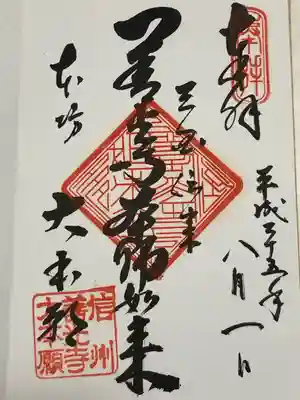 奉拝
平成二十五年
八月一日
三国伝来
善光寺 如来
本坊
大本願
信州
善光寺
大本願